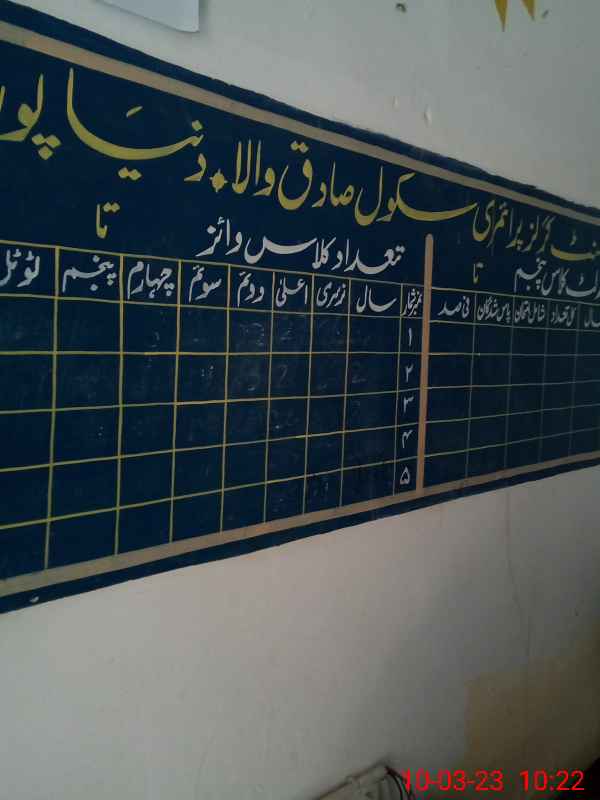 گرلز پرائمری سکول صادق والا دنیا پور
تعداد کلاس وائز
تا
کلاس پنجم
تا
سال کل تعداد شامل امتحان پاس شدگان فی صد
نمبر شمار سال نرسری اعلیٰ دوئم سوئم چہارم پنجم ٹوٹل
۱
۲
۳
۴
۵
10-03-23 10:22